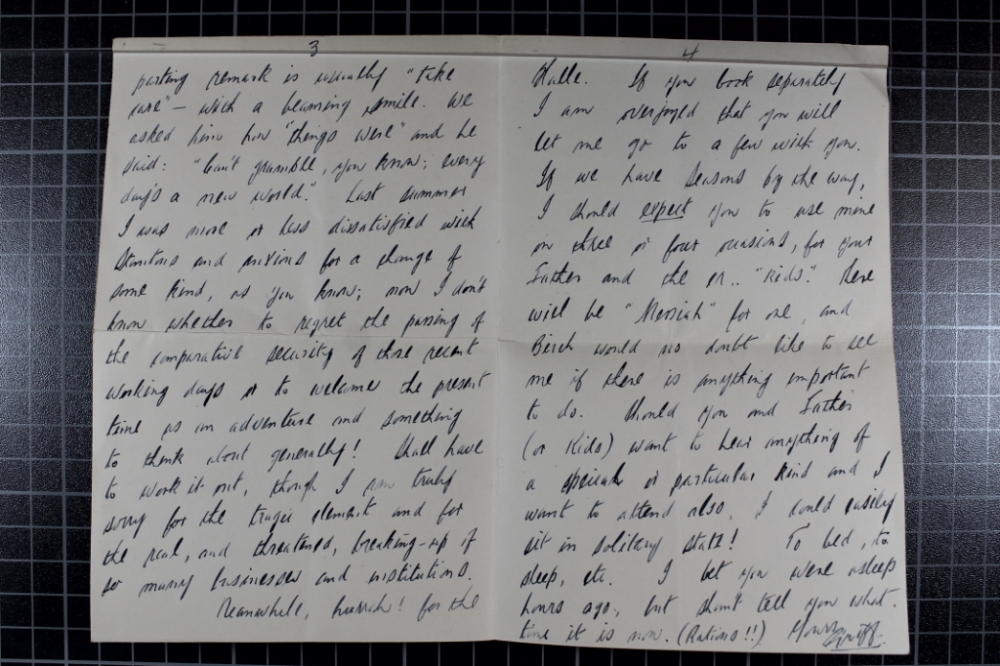 3
parting remark is usually "take
care" — with a beaming smile. We
asked him how "things were" and he
said: "Can't grumble, you know; every
day's a new world." Last summer
I was more or less dissatisfied with
Stanitons and anxious for a change of
some kind, as you know; now I don't
know whether to regret the passing of
the comparative security of those recent
working days or to welcome the present
time as an adventure and something
to think about generally! Shall have
to work it out, though I am truly
sorry for the tragic element and for
the real, and threatened, breaking-up of
so many businesses and institutions.
Meanwhile, hurrah! for the
4
Halle. If you book separately
I am overjoyed that you will
let me go to a few with you.
If we have seasons by the way,
I should expect you to use mine
on three or four occasions, for your
Father and the "Kids". There
will be "Messiah" for one, and
Beech would no doubt like to see
me if there is anything important
to do. Should you and Father
(or Kids) want to hear anything of
a special or particular kind and I
want to attend also, I could easily
sit in solitary state! To bed, to
sleep, etc. I bet you were asleep
hours ago, but shan't tell you what
time it is now. (Rations!!) Yours